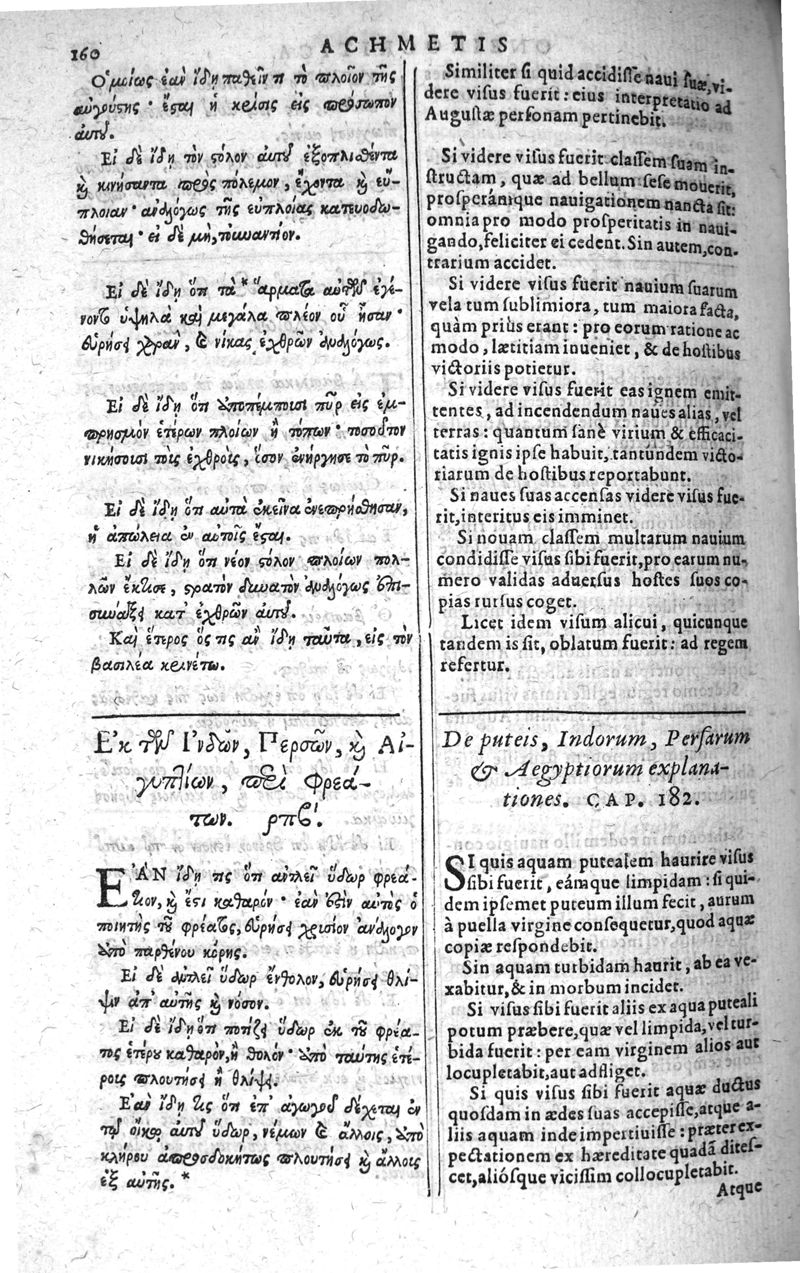 160
ACHMETIS
Ὁμοίως ἐὰν ἴδῃ παθεῖν τι τὸ πλοῖον τῆς
αὐγούστης· ἔσται ἡ κρίσις εἰς πρόσωπον
αὐτοῦ.
Εἰ δὲ ἴδῃ τὸν στόλον αὐτοῦ ἐξοπλισθέντα
καὶ κινήσαντα πρὸς πόλεμον, ἔχοντα καὶ εὔ-
πλοιαν· ἀναλόγως τῆς εὐπλοίας κατευοδω-
θήσεται· εἰ δὲ μὴ, τοὐναντίον.
Εἰ δὲ ἴδῃ ὅτι τὰ* ἄρματα αὐτῶν ἐγέ-
νοντο ὑψηλὰ καὶ μεγάλα πλέον οὗ ἦσαν·
εὑρήσει χαρὰν, καὶ νίκας ἐχθρῶν ἀναλόγως.
Εἰ δὲ ἴδῃ ὅτι ἀποπέμπουσι πῦρ εἰς ἐμ-
πρησμὸν ἑτέρων πλοίων ἢ τόπων· τοσοῦτον
νικήσουσι τοὺς ἐχθροὺς, ὅσον ἐνήργησε τὸ πῦρ.
Εἰ δὲ ἴδῃ ὅτι αὐτὰ ἐκεῖνα ἐνεπρήσθησαν,
ἡ ἀπώλεια ἐν αὐτοῖς ἔσται.
Εἰ δὲ ἴδῃ ὅτι νέον στόλον πλοίων πολ-
λῶν ἔκτισε, στρατὸν δυνατὸν ἀναλόγως ἐπι-
συνάξει κατ' ἐχθρῶν αὐτοῦ.
Καὶ ἕτερος ὅς τις ἂν ἴδῃ ταῦτα, εἰς τὸν
βασιλέα κρινέτω.
Ἐκ τῶν Ἰνδῶν, Περσῶν, καὶ Αἰ-
γυπτίων, περὶ φρεά-
των. ρπβ'.
ἘΑΝ ἴδῃ τις ὅτι ἀντλεῖ ὕδωρ φρεά-
τιον, καὶ ἔστι καθαρόν· ἐὰν ἐστὶν αὐτὸς ὁ
ποιητὴς τοῦ φρέατος, εὑρήσει χρυσίον ἀνάλογον
ἀπὸ παρθένου κόρης.
Εἰ δὲ ἀντλεῖ ὕδωρ ἔνθολον, εὑρήσει θλί-
ψιν ἀπ' αὐτῆς καὶ νόσον.
Εἰ δὲ ἴδῃ ὅτι ποτίζει ὕδωρ ἐκ τοῦ φρέα-
τος ἑτέρους καθαρὸν, ἢ θολόν· ἀπὸ ταύτης ἑτέ-
ροις πλουτήσει ἢ θλίψει.
Ἐὰν ἴδῃ τις ὅτι ἐπ' ἀγωγοῦ δέχεται ἐν
τῷ οἴκῳ αὐτοῦ ὕδωρ, νέμων καὶ ἄλλοις, ἀπὸ
κλήρου ἀπροσδοκήτως πλουτήσει καὶ ἄλλοις
ἐξ αὐτῆς.*
Similiter si quid accidisse naui suæ, vi-
dere visus fuerit: eius interpretatio ad
Augustæ personam pertinebit.
Si videre visus fuerit classem suam in-
structam, quæ ad bellum sese mouerit,
prosperámque nauigationem nancta sit:
omnia pro modo prosperitatis in naui-
gando, feliciter ei cedent. Sin autem, con-
trarium accidet.
Si videre visus fuerit nauium suarum
vela tum sublimiora, tum maiora facta,
quàm priùs erant: pro eorum ratione ac
modo, lætitiam inueniet, & de hostibus
victoriis potietur.
Si videre visus fuerit eas ignem emit-
tentes, ad incendendum naues alias, vel
terras: quantum sanè virium & efficaci-
tatis ignis ipse habuit, tantundem victo-
riarum de hostibus reportabunt.
Si naues suas accensas videre visus fue-
rit, interitus eis imminet.
Si nouam classem multarum nauium
condidisse visus sibi fuerit, pro earum nu-
mero validas aduersus hostes suos co-
pias rursus coget.
Licet idem visum alicui, quicunque
tandem is sit, oblatum fuerit: ad regem
refertur.
De puteis, Indorum, Persarum
& Aegyptiorum explana-
tiones. CAP. 182.
SI quis aquam putealem haurire visus
sibi fuerit, eámque limpidam: si qui-
dem ipsemet puteum illum fecit, aurum
à puella virgine consequetur, quod aquæ
copiæ respondebit.
Sin aquam turbidam haurit, ab ea ve-
xabitur, & in morbum incidet.
Si visus sibi fuerit aliis ex aqua puteali
potum præbere, quæ vel limpida, vel tur-
bida fuerit: per eam virginem alios aut
locupletabit, aut adfliget.
Si quis visus sibi fuerit aquæ ductus
quosdam in ædes suas accepisse, atque a-
liis aquam inde impertiuisse: præter ex-
pectationem ex hæreditate quadã ditef-
cet, aliósque vicissim collocupletabit.
Atque